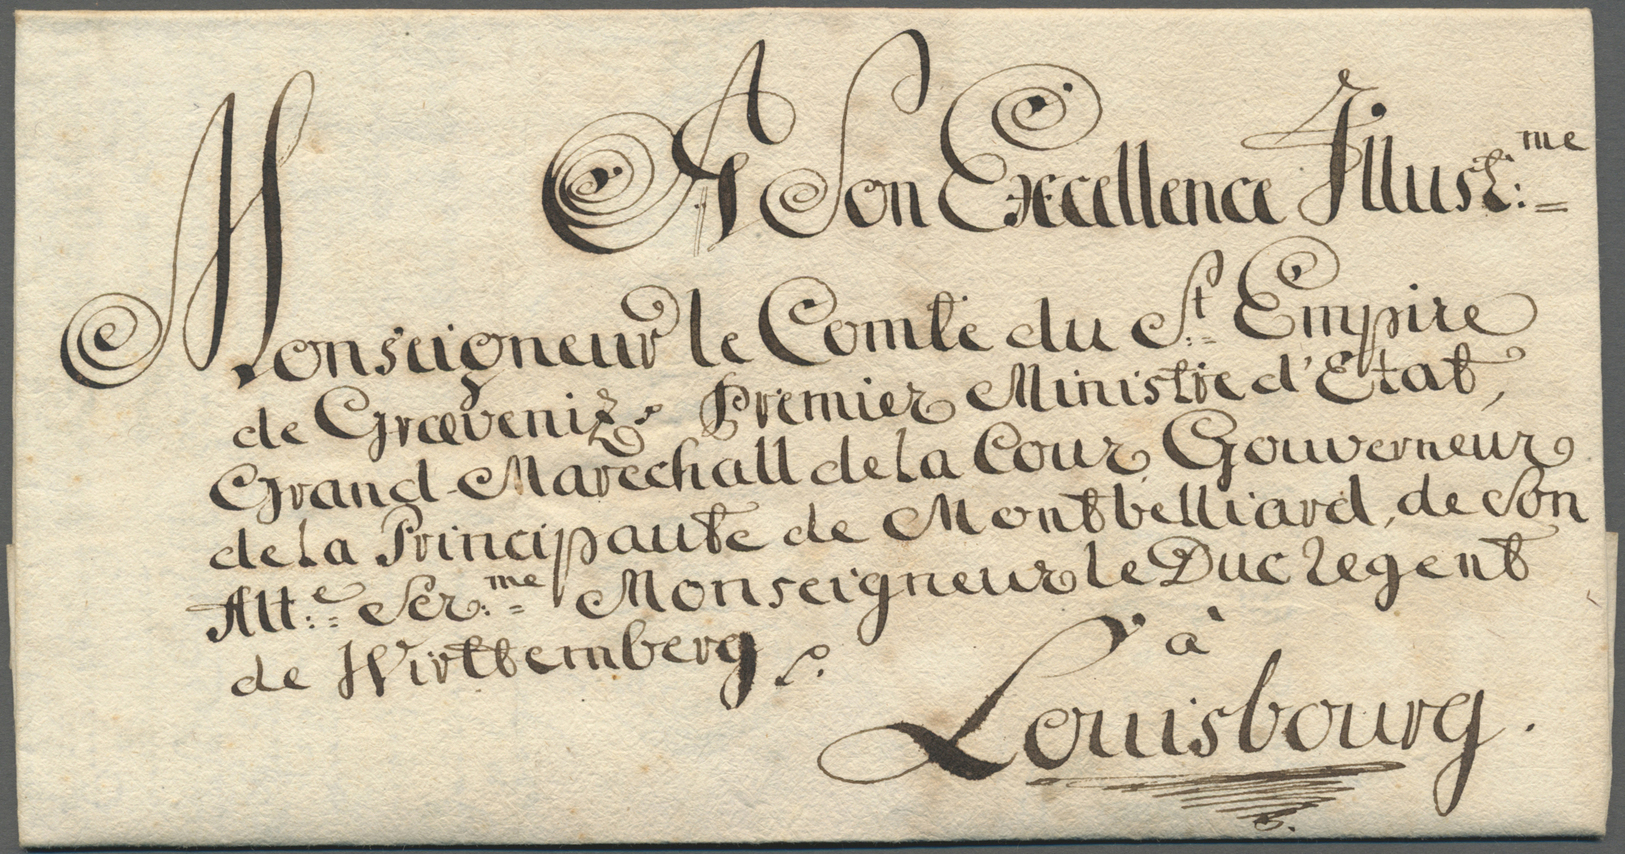 A Son Excellence Illust:me
Monseigneur le Comte du St: Empire
de Grævenitz, Premier Ministre d'Etat,
Grand-Marechall de la Cour, Gouverneur
de la Principauté de Montbelliard, de Son
Alt:e Ser:me Monseigneur le Duc regent
de Wirttemberg
à
Louisbourg.